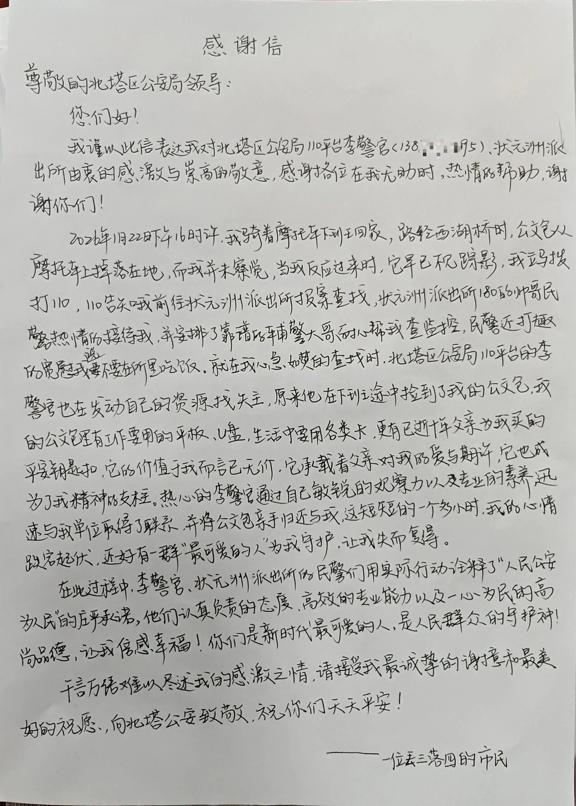 感谢信
尊敬的北塔区公安局领导：
您们好！
我谨以此信表达我对北塔区公安局110平台李警官(138 95)、状元洲派
出所由衷的感激与崇高的敬意，感谢各位在我无助时，热情的帮助，谢
谢你们！
2026年1月22日下午16时许，我骑着摩托车下班回家，路经西湖桥时，公文包从
摩托车上掉落在地，而我并未察觉，当我反应过来时，它早已杳无踪影，我立马拨
打110，110告知我前往状元洲派出所报案查找，状元洲派出所180的帅哥民
警热情的接待我，并安排了靠谱的辅警大哥耐心帮我查监控，民警还打趣
的宽慰我要不要在所里吃饭。就在我心急如焚的查找时，北塔区公安局110平台的李
警官也在发动自己的资源找失主，原来他在下班途中捡到了我的公文包，我
的公文包里有工作要用的平板、U盘，生活中要用各类卡，更有已逝十年父亲为我买的
平安钥匙扣，它的价值于我而言已无价，它承载着父亲对我的爱与期许，它也成
为了我精神的支柱。热心的李警官通过自己敏锐的观察力以及专业的素养迅
速与我单位取得了联系，并将公文包亲手归还与我，这短短的一个多小时，我的心情
跌宕起伏，还好有一群“最可爱的人”为我守护，让我失而复得。
在此过程中，李警官、状元洲派出所的民警们用实际行动诠释了“人民公安
为人民”的庄严承诺，他们认真负责的态度、高效的专业能力以及一心为民的高
尚品德，让我倍感幸福！你们是新时代最可爱的人，是人民群众的守护神！
千言万语难以尽述我的感激之情，请接受我最诚挚的谢意和最美
好的祝愿，向北塔公安致敬，祝你们天天平安！
——一位丢三落四的市民